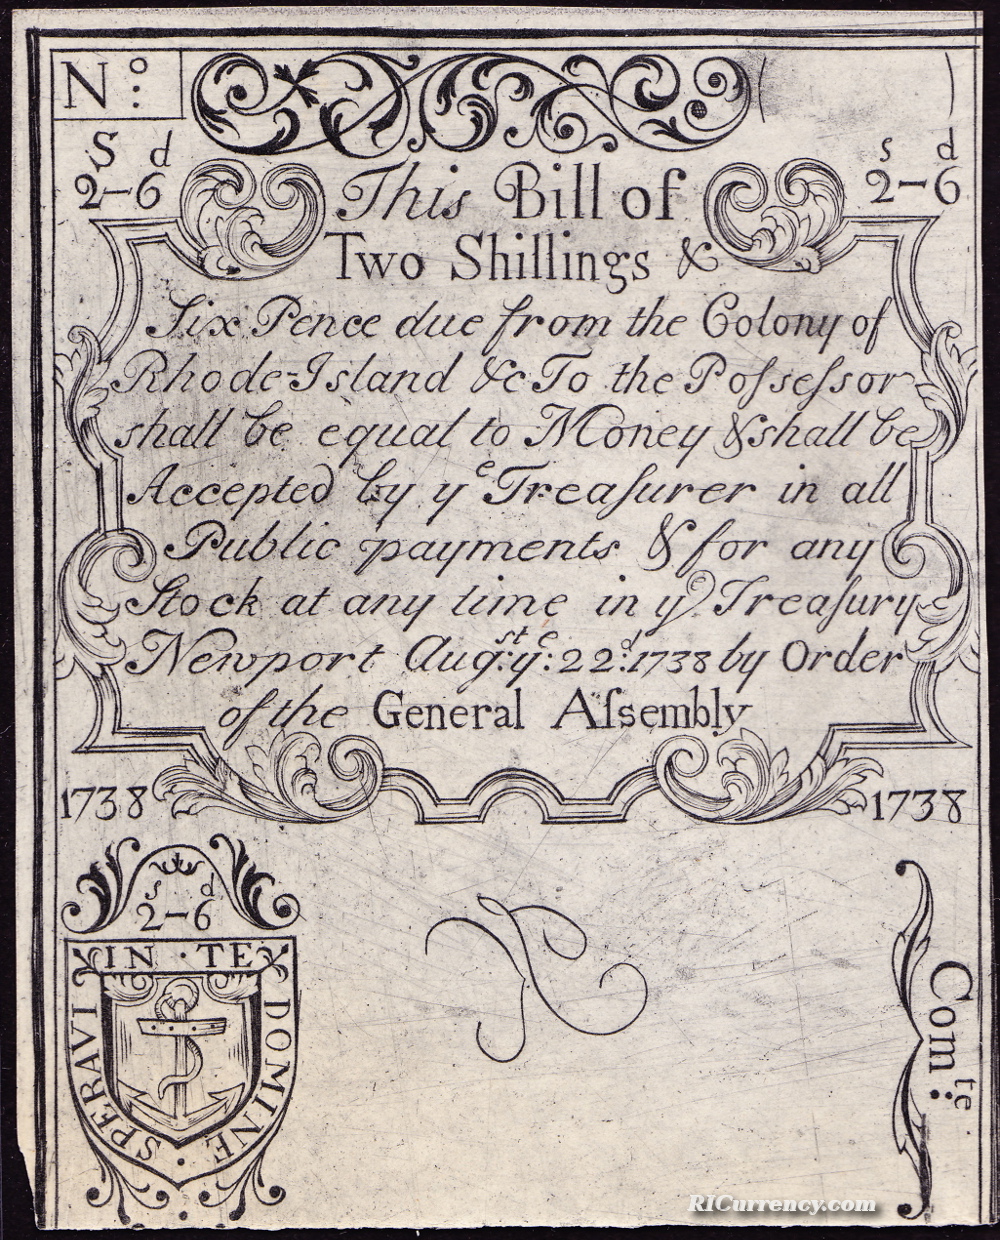 No:
S d
2-6
s d
2-6
This Bill of
Two Shillings &
Six Pence due from the Colony of
Rhode-Island &c To the Poſseſsor
shall be equal to Money & shall be
Accepted by yᵉ Treaſurer in all
Public payments & for any
Stock at any time in yᵉ Treaſury
Newport Augˢᵗ: yᵉ: 22ᵈ: 1738 by Order
of the General Aſsembly
1738
1738
s d
2-6
IN · TE · DOMINE · SPERAVI
Comᵗᵉ:
RICurrency.com